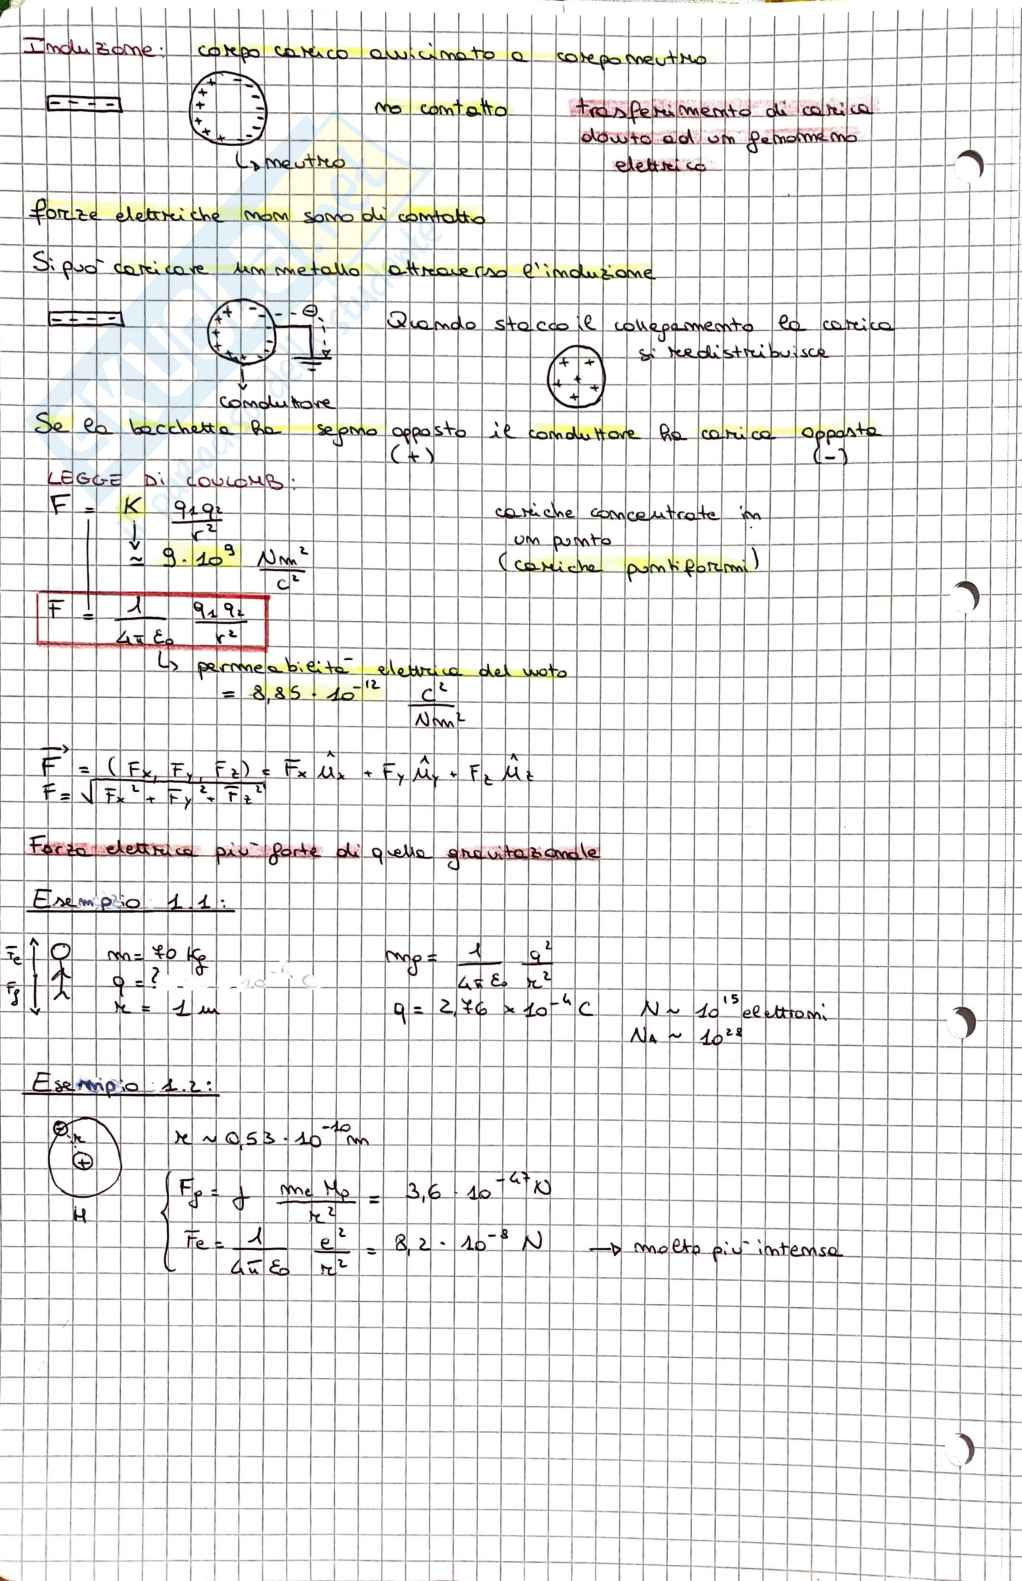 Induzione: corpo carico avvicinato a corpo neutro
no contatto
trasferimento di carica
dovuto ad un fenomeno
elettrico
↳ neutro
forze elettriche non sono di contatto
Si può caricare un metallo attraverso l'induzione
Quando stacco il collegamento la carica
si redistribuisce
conduttore
Se la bacchetta ha segno opposto il conduttore ha carica opposta
(+) (-)
LEGGE DI COULOMB:
F = K q₁q₂/r²
≃ 9·10⁹ Nm²/C²
cariche concentrate in
un punto
(cariche puntiformi)
F = 1/(4π ε₀) q₁q₂/r²
↳ permeabilità elettrica del vuoto
= 8,85 · 10⁻¹² C²/Nm²
F⃗ = (Fx, Fy, Fz) = Fx ûx + Fy ûy + Fz ûz
F = √(Fx² + Fy² + Fz²)
Forza elettrica più forte di quella gravitazionale
Esempio 1.1:
Fe
Fg
m = 70 Kg
q = ?
r = 1 m
mg = 1/(4π ε₀) q²/r²
q = 2,76 × 10⁻⁴ C N ~ 10¹⁵ elettroni
N_A ~ 10²⁸
Esempio 1.2:
r
H
r ~ 0,53 · 10⁻¹⁰ m
Fg = γ me Mp/r² = 3,6 · 10⁻⁴⁷ N
Fe = 1/(4π ε₀) e²/r² = 8,2 · 10⁻⁸ N → molto più intensa